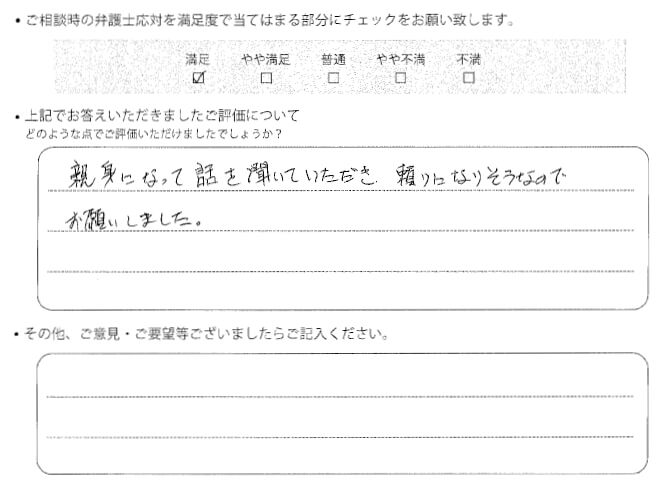 ・ご相談時の弁護士応対を満足度で当てはまる部分にチェックをお願い致します。
満足 やや満足 普通 やや不満 不満
☑ ☐ ☐ ☐ ☐
・上記でお答えいただきましたご評価について
どのような点でご評価いただけましたでしょうか?
親身になって話を聞いていただき、頼りになりそうなので
お願いしました。
・その他、ご意見・ご要望等ございましたらご記入ください。